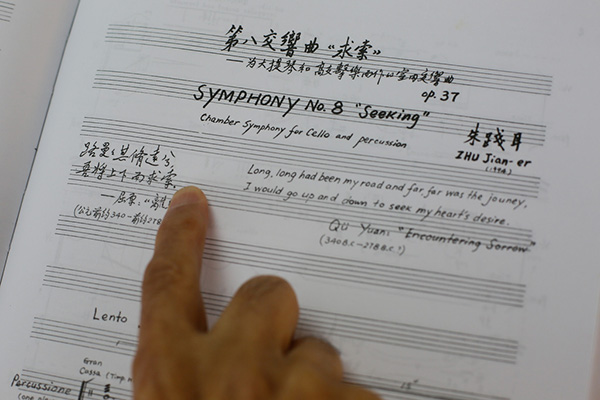 第八交響曲“求索”
——为大提琴和敲击乐而作的室内交響曲
op. 37
SYMPHONY No. 8 "Seeking"
Chamber Symphony for Cello and percussion
朱践耳
ZHU Jian-er
(1994)
路曼曼其脩遠兮,
吾将上下而求索.
——屈原:"离
(公元前约340-前约278
Long, long had been my road and far, far was the jouney,
I would go up and down to seek my heart's desire.
Qü Yuan: "Encountering Sorrow"
(340B.C.-278B.C.?)
Lento
Gran
Cassa (Timp
Percussione